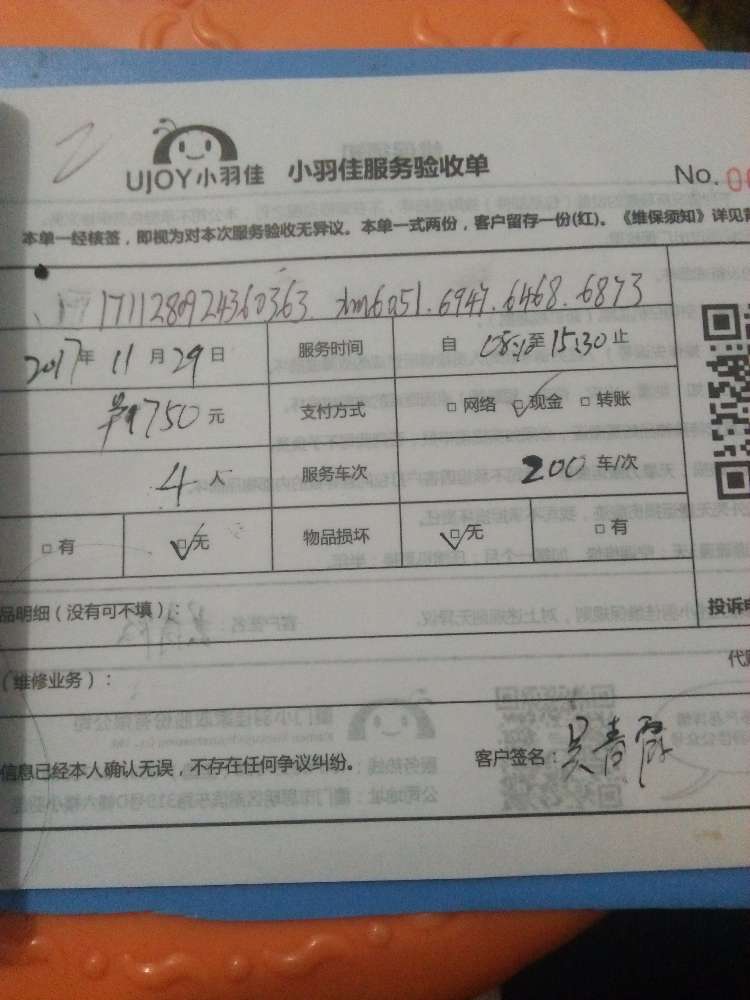 UJOY小羽佳 小羽佳服务验收单 No.
本单一经核签，即视为对本次服务验收无异议。本单一式两份，客户留存一份(红)。《维保须知》详见
1711280924360363. xm6051.6947.6468.6873
2017年11月29日 服务时间 自 08:10至15:30止
750元 支付方式 □网络 ☑现金 □转账
4人 服务车次 200车/次
□有 ☑无 物品损坏 ☑无 □有
品明细（没有可不填）： 投诉
（维修业务）：
信息已经本人确认无误，不存在任何争议纠纷。 客户签名：吴青霞